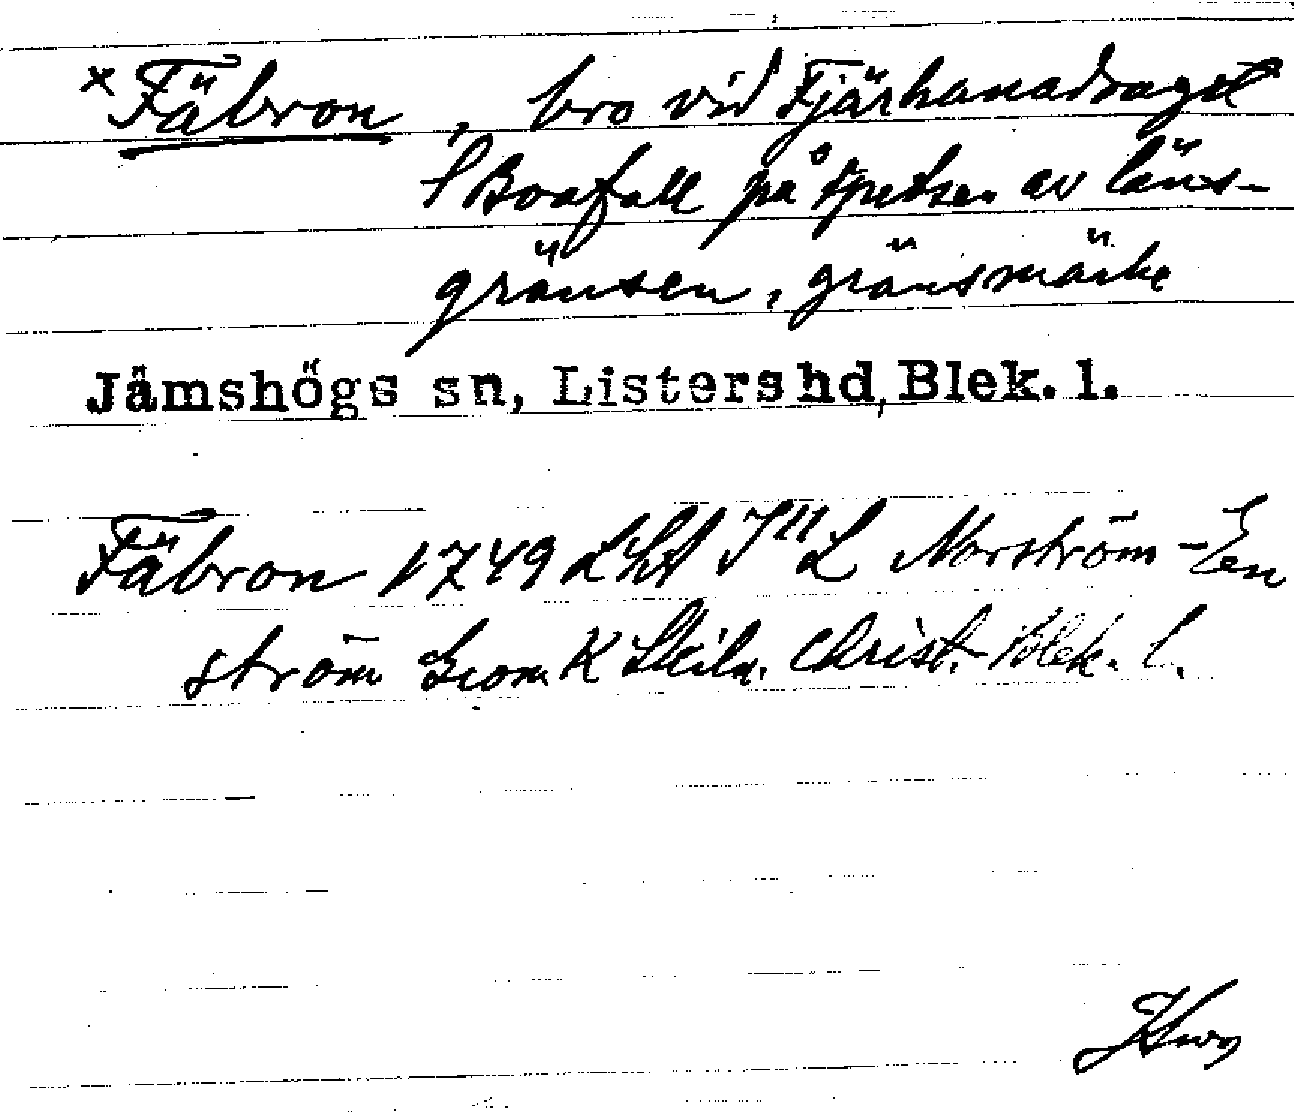 × Fäbron, bro vid Fjärhanadraget
f Boafall på spetsen av läns-
gränsen, gränsmärke
Jämshögs sn, Listers hd, Blek. l.
Fäbron 1749 LHA Norström - Een
ström Geom. K Skiln. Christ.-Blek. l.